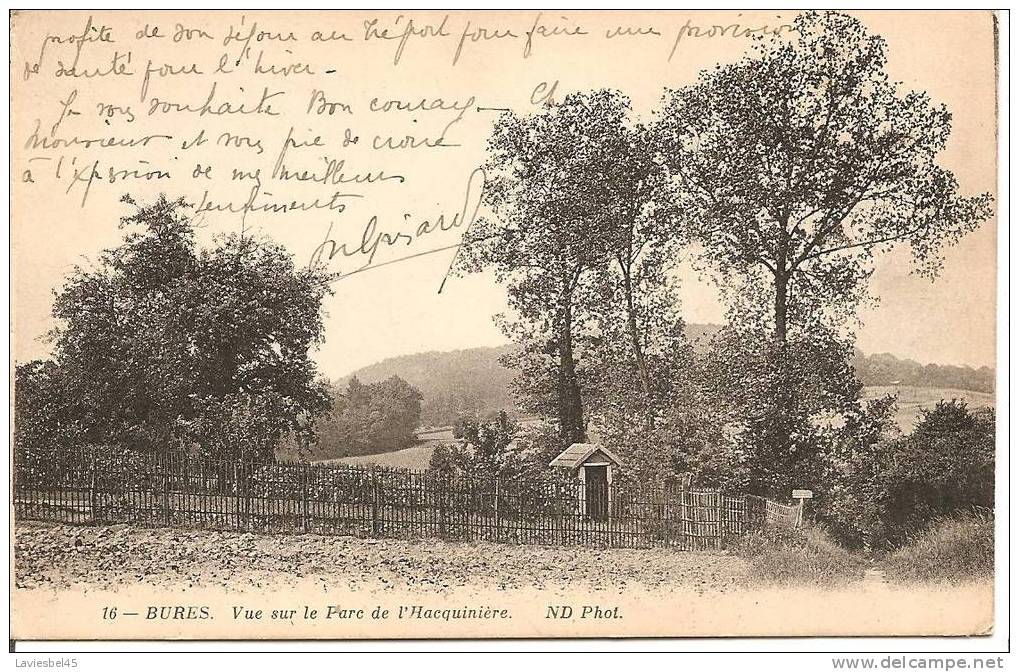 profite de son séjour au Tréport pour faire une provision
de santé pour l'hiver -
Je vous souhaite Bon courage - et
monsieur et vous prie de croire
à l'expression de mes meilleurs
sentiments
16 — BURES. Vue sur le Parc de l'Hacquinière. ND Phot.
Laviesbel45
delcampe.net